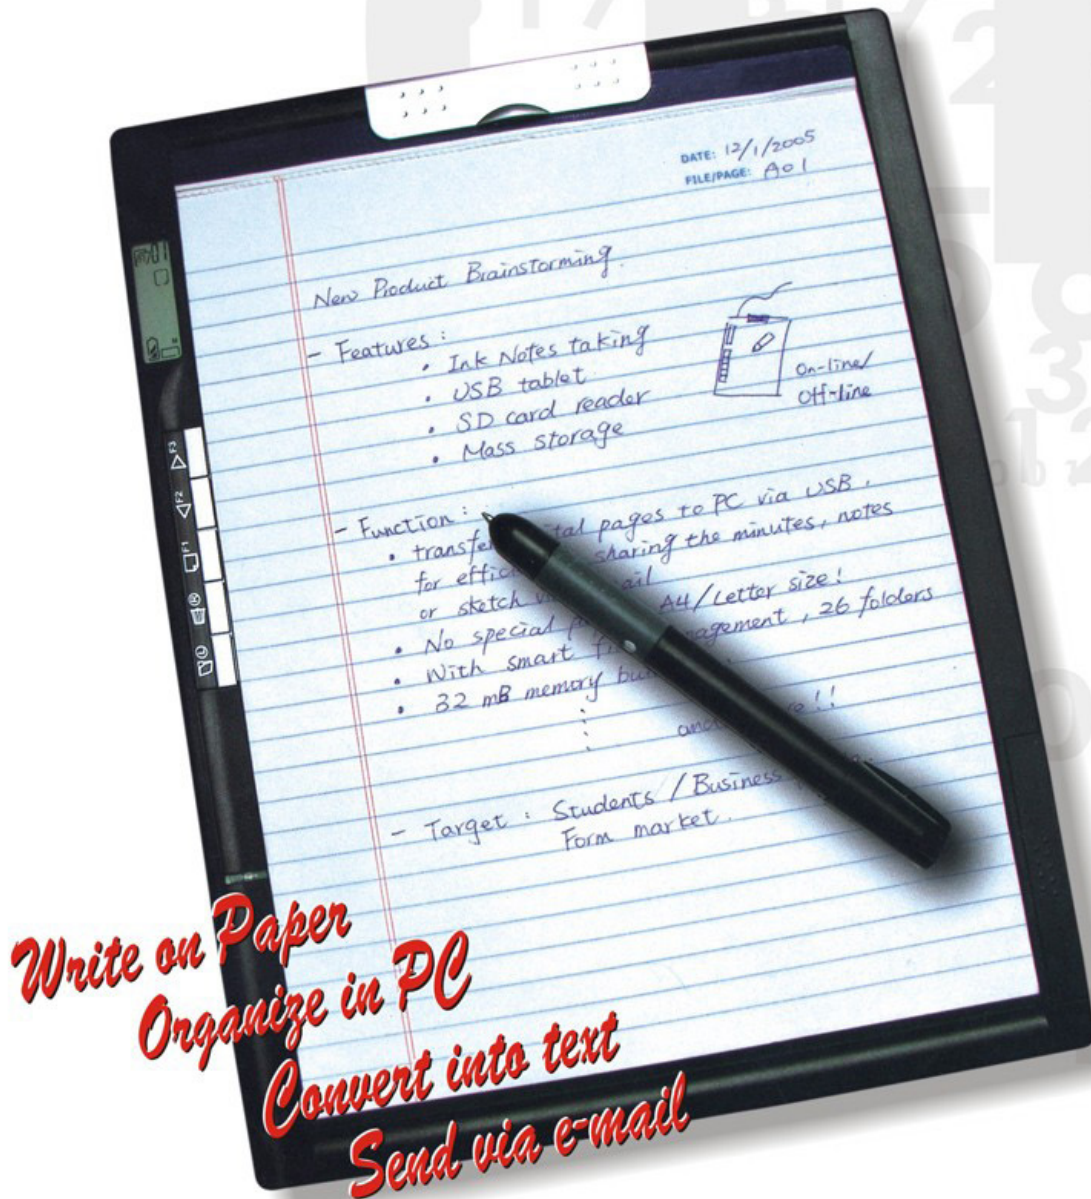 DATE: 12/1/2005
FILE/PAGE: A01
New Product Brainstorming.
- Features :
• Ink Notes taking
• USB tablet
• SD card reader
• Mass storage
On-line/
Off-line
- Function :
• transfer pages to PC via USB,
for sharing the minutes, notes
or sketch
• No special A4/Letter size!
• With smart , 26 folders
• 32 mB memory
!!
- Target : Students / Business
Form market.
F3
F2
F1
Write on Paper
Organize in PC
Convert into text
Send via e-mail